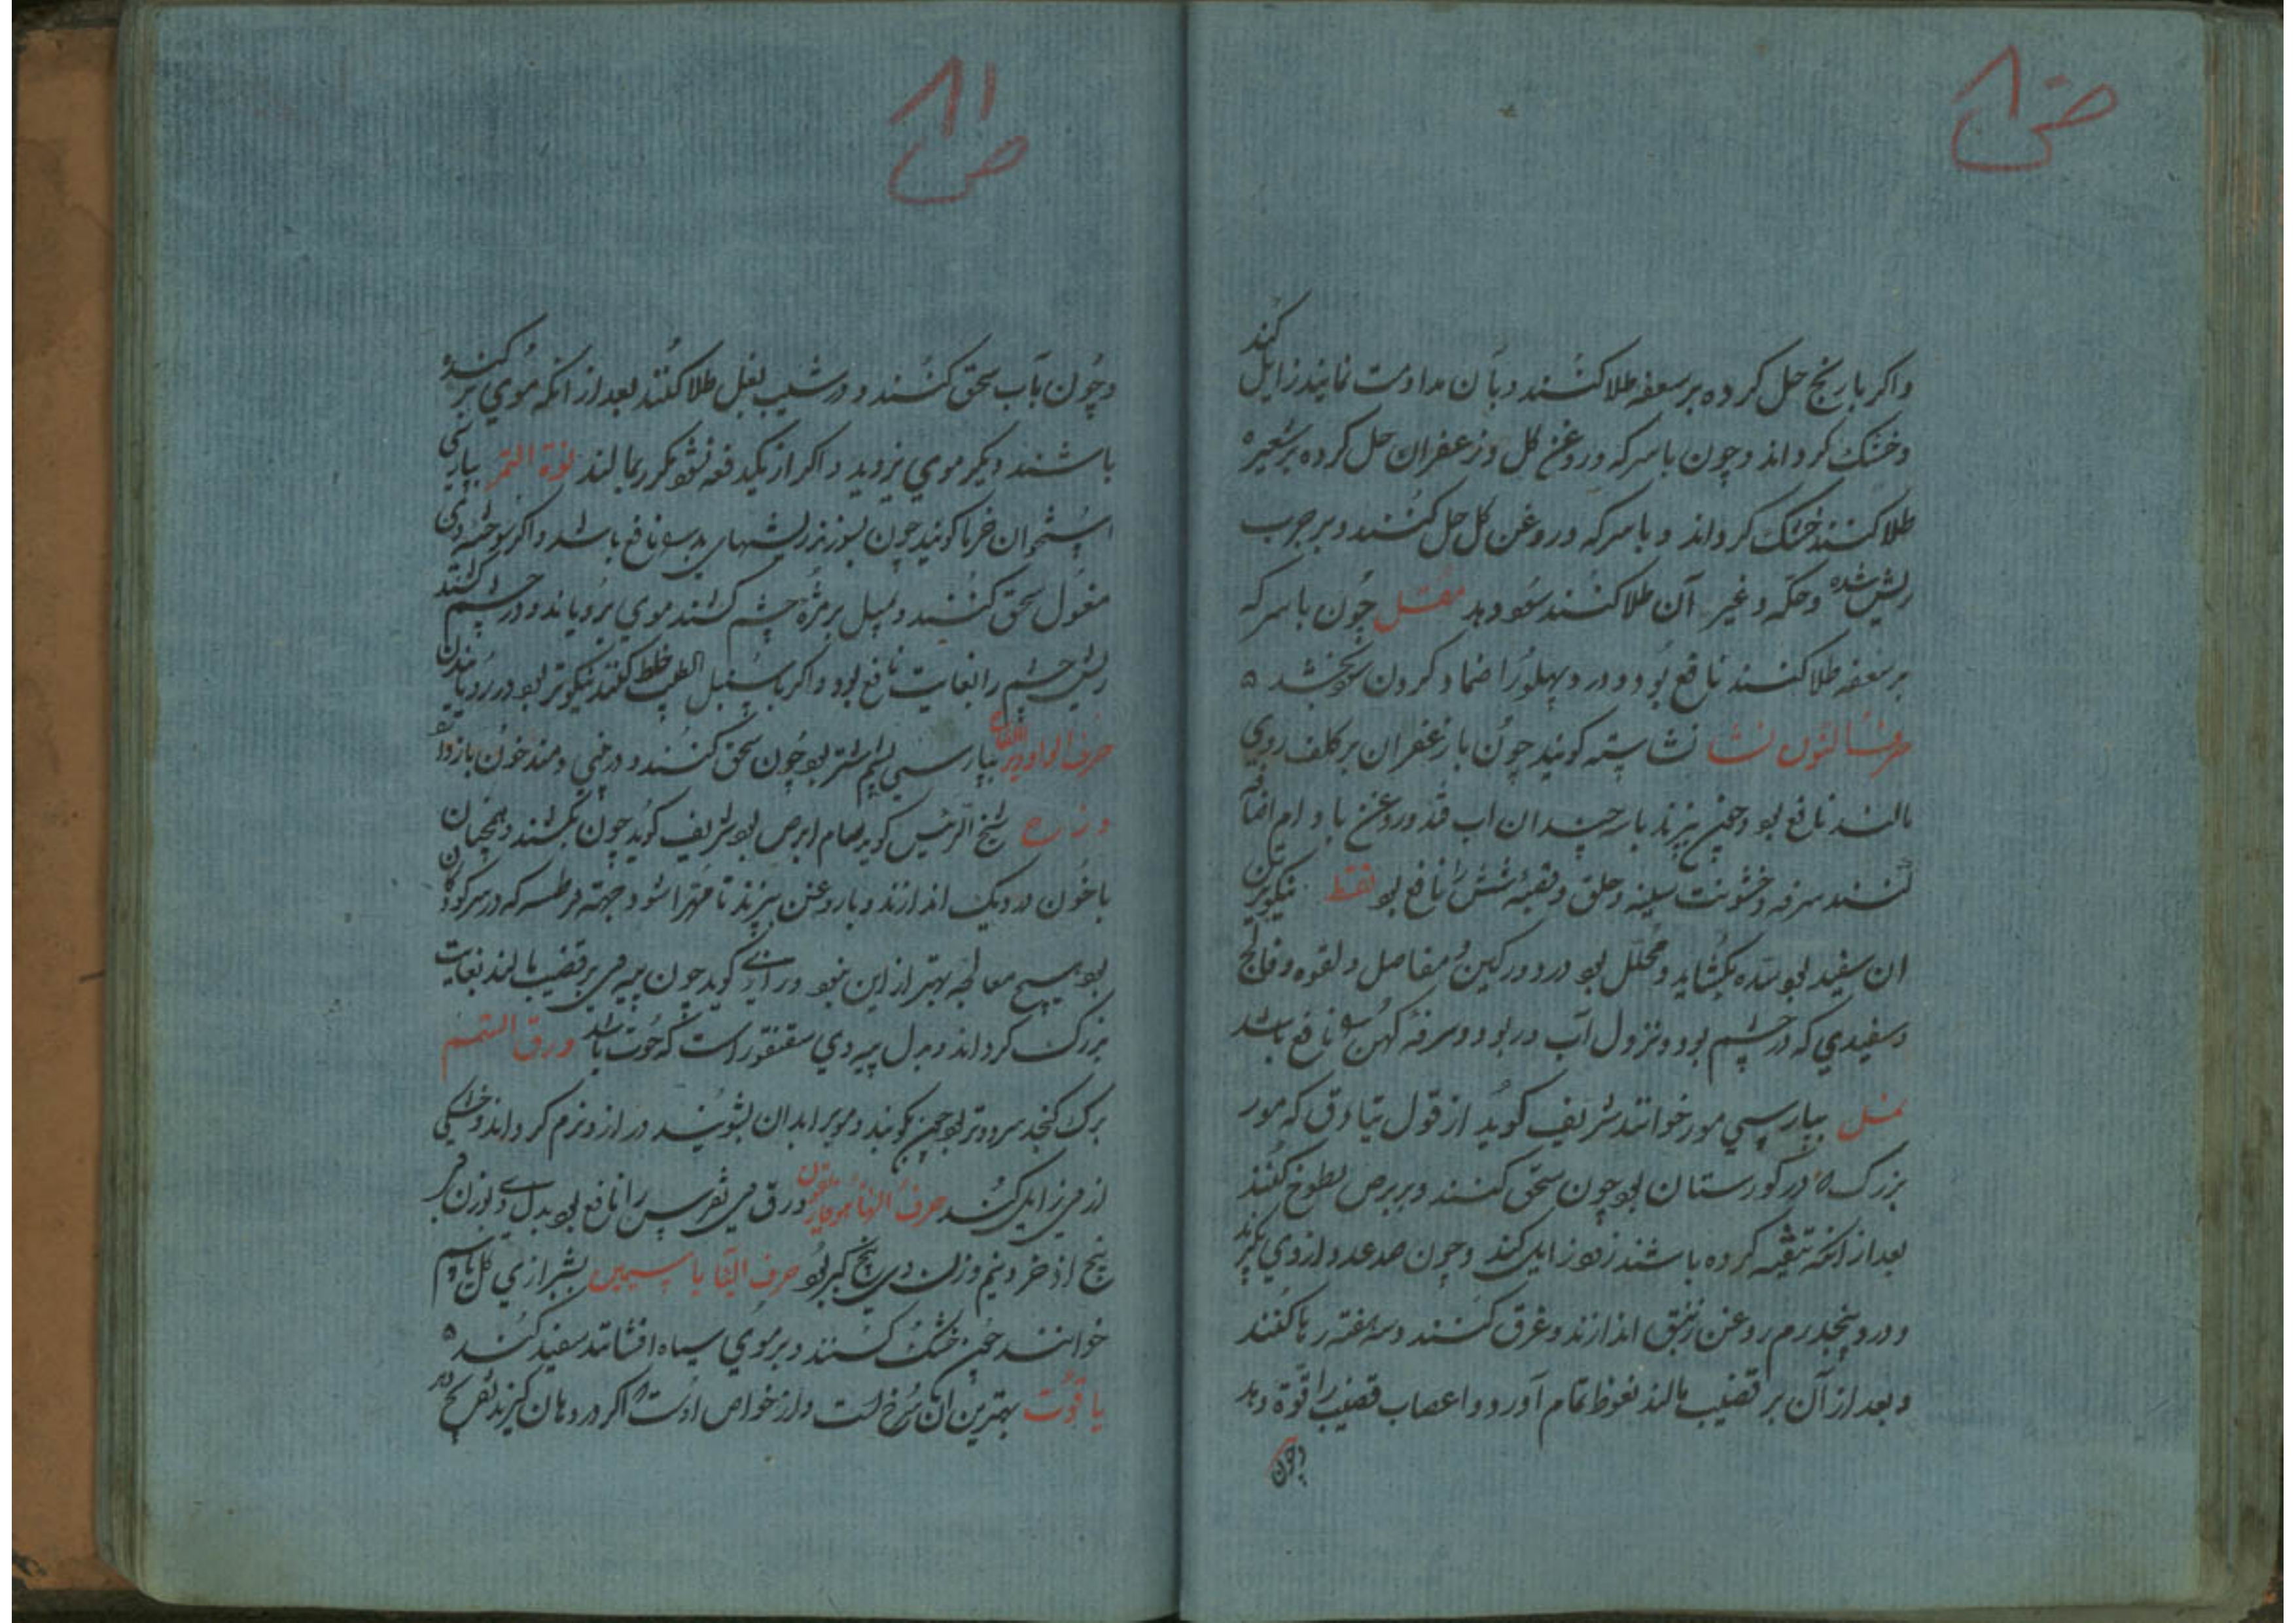 ص ۸۰
واکر بارنج حل کرده بر سعفه طلا کنند و بآن مداومت نمایند زایل کند
و خشک کرداند و چون باسرکه و روغن کل و زعفران حل کرده بر شعیره
طلا کنند خشک کرداند و باسرکه و روغن کل حل کنند و بر جرب
ریش شده و حکه و غیر آن طلا کنند سود دهد مقل چون باسرکه
بر سعفه طلا کنند نافع بود و درد پهلو را ضماد کردن سود بخشد ۵
حرف النون نشا نشاسته کویند چون با زعفران بر کلف روی
مالند نافع بو و چون بپزند با سه چندان اب قند و روغن بادام اضافه
کنند سرفه و خشونت سینه و حلق و قصبه شش را نافع بو نفط نیکوترین
ان سفید بو سده بکشاید و محلل بو درد ورکین و مفاصل و لقوه و فالج
و سفیدی که در چشم بود و نزول آب در بود و سرفه کهن را نافع باشد
نمل بپارسی مور خوانند شریف کوید از قول تیاذق که مور
بزرک که در کورستان بو چون سحق کنند و بر برص لطوخ کنند
بعد از انکه تنقیه کرده باشند زود زایل کند و چون صد عدد از وی بکیرند
و در پنجدرم روغن زنبق اندازند و غرق کنند و سه هفته رها کنند
و بعد از آن بر قضیب مالند نغوظ تمام آورد و اعصاب قضیب را قوة دهد
و چون
ص ۸۱
و چون بآب سحق کنند و در شیب بغل طلا کنند بعد از انکه موی بر کنده
باشند دیکر موی نروید و اکر از یکدفعه نشو مکرر بمالند نوة التمر بپارسی
استخوان خرما کویند چون بسوزند ریشهای بد را نافع باشد و اکر سوخته وی
مغسول سحق کنند و بمیل بر مژه چشم کشند موی برویاند و در چشم کشند
ریش چشم را بغایت نافع بود و اکر با سنبل الطیب خلط کنند نیکوتر بو در رویانیدن
حرف الواو وبر بپارسی پشم اشتر بو چون سحق کنند و در بینی دمند خون بازدارد
وزغه شیخ الرئیس کوید صام ابرص بو شریف کوید چون بکشند و همچنان
با خون در دیک اندازند و با روغن بپزند تا مهرا شود جهته قرطسه که در سر کودکان
بو هیچ معالجه بهتر از این نبود و رازی کوید چون پیه وی بر قضیب مالند بغایت
بزرک کرداند و بدل پیه وی سقنقور است که حوت باشد ورق السمسم
برک کنجد سرد و تر بو چون بکوبند و موی را بدان بشویند دراز و نرم کرداند و خشکی
از وی زایل کند حرف الها هوفاریقون ورق وی نقرس را نافع بو بدل وی بوزن وی
بیخ اذخر و نیم وزن وی بیخ کبر بو حرف الیا یاسمین بشیرازی کل یاسم
خوانند چون خشک کنند و بر موی سیاه افشانند سفید کند ۵
یاقوت بهترین ان سرخ است و از خواص اوست که اکر در دهان کیرند تفریح دهد